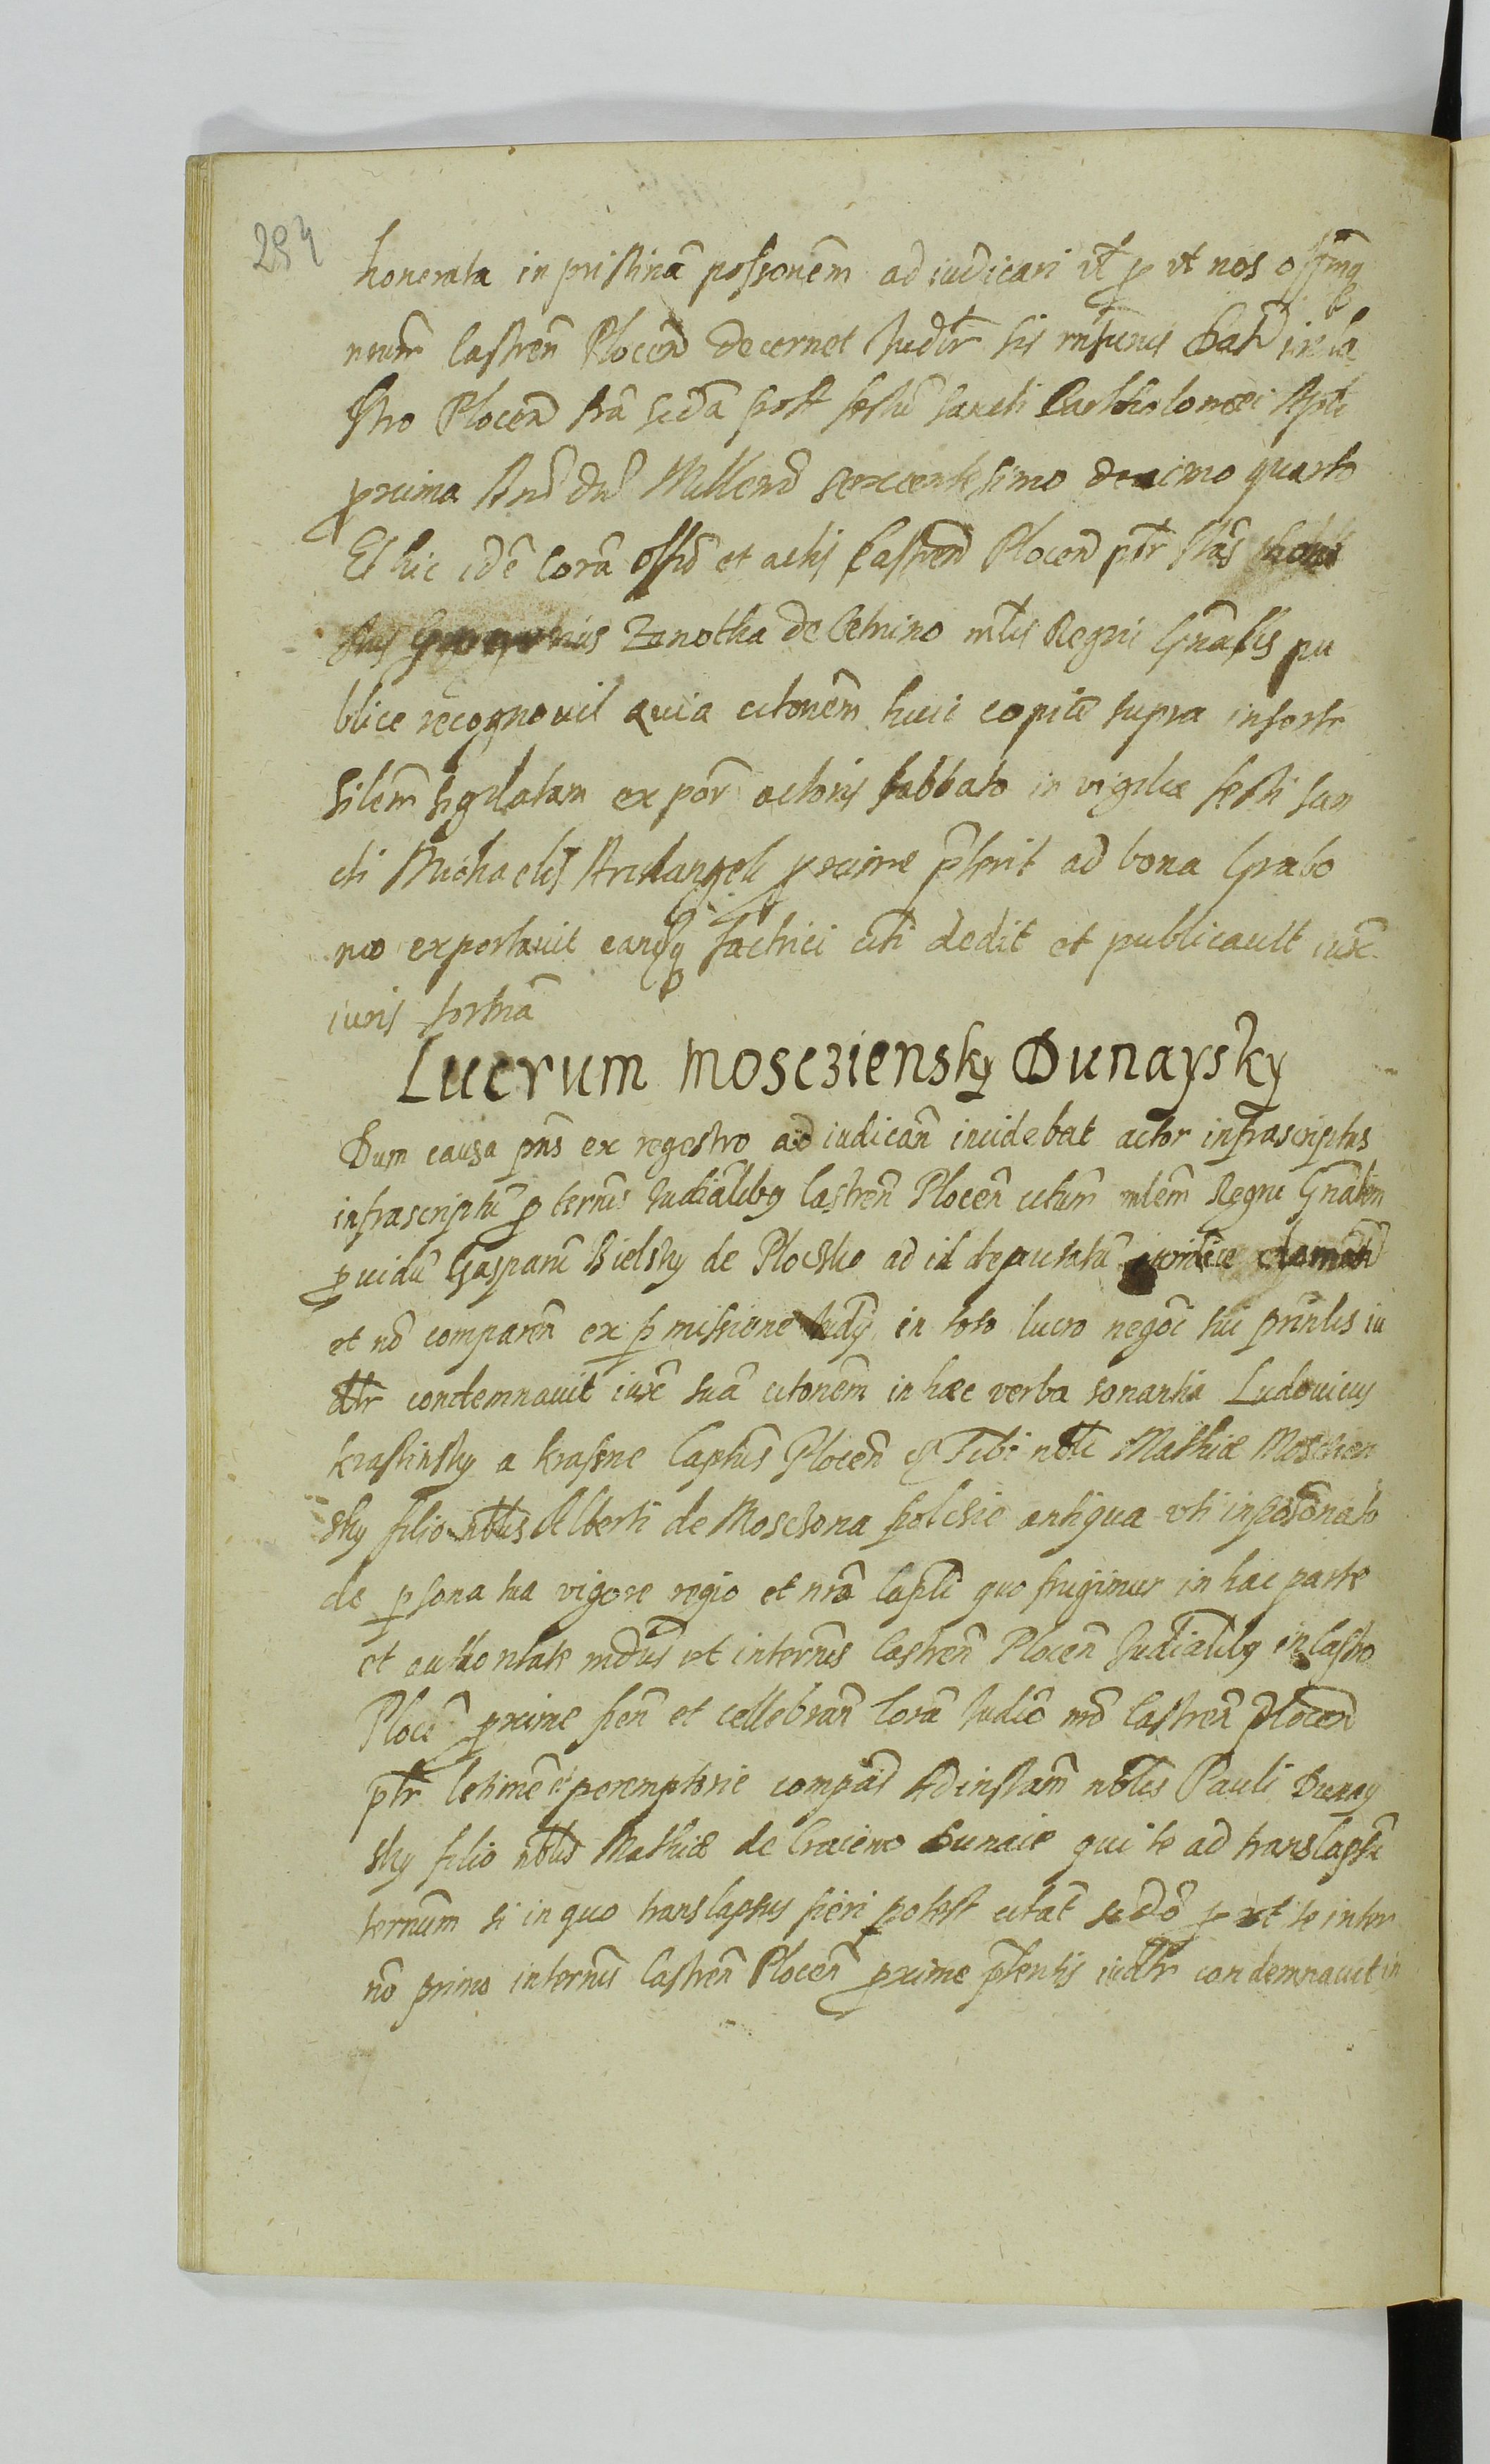 254
honerata in pristinã possonem adiudicari vt̃ ꝑ vt nos
nrum Castreñ Plocen̄ decernet Judr̃ sis Dat̃ in Ca
stro Plocen̄ fr̃a scdã post festũ sancti Bartholomæi Aplĩ
proxima Anñ dnĩ Millen̄ sexcentesimo decimo quarto
Et hic idẽ Corã offõ et actis Castren̄ Plocen̄ ptr̃ stãs
Zenotha de Cetlino mlis Regni Gnãlis pu
blice recognouit quia citonẽm huic copiæ supra inserte
silem̃ sigillatam ex põr actoris sabbato in vigilia festi san
cti Michaelis Archangeli proxime p̃terit ad bona Grabo
wo exportauit eandq̃ factrici citĩ dedit et publicauit iux̃
iuris formã
Lucrum Moscziensky Dunaysky
Dum causa pñs ex regestro ad iudicañ incidebat actor infrascriptus
infrascriptũ ꝑ ternũ Judicialibq Castreñ Ploceñ citum̃ mlem̃ Regni Gnãlem
ꝓuidũ Gasparũ Bielsky de Plocsko ad id deputatũ iuridice clamatũ
et nõ compareñ ex ꝑmissione Judỹ in toto lucro negõĩ sui prinlis iu
dtr̃ condemnauit iux̃ suã citonẽm in hæc verba sonantia Ludouicus
Krassinsky a Krasne Captũs Ploceñ Tibi nbli Mathiæ Mosczien
sky filio nblis Alberti de Mosczona antiqua vti inpõsõnato
de ꝑsona tua vigore regio et nrã Capli quo frugimur in hac parte
et authoritate mdũs vt in ternis Castreñ Ploceñ Judicialibq in Castro
Ploceñ proxime fieñ et cellebrañ Corã Judiõ nrõ Castreñ Plocen̄
ptr̃ letimẽ et peremptorie compãs Ad instam̃ nblis Pauli Dunay
sky filio nblis Mathiæ de Craiewo Dunaie qui te ad translapsũ
ternum si in quo translapsus fieri potest citat̃ scdõ ꝓ vt te in ter
nõ primo in ternis Castreñ Ploceñ proxime p̃tentis iudtr̃ condemnauit in